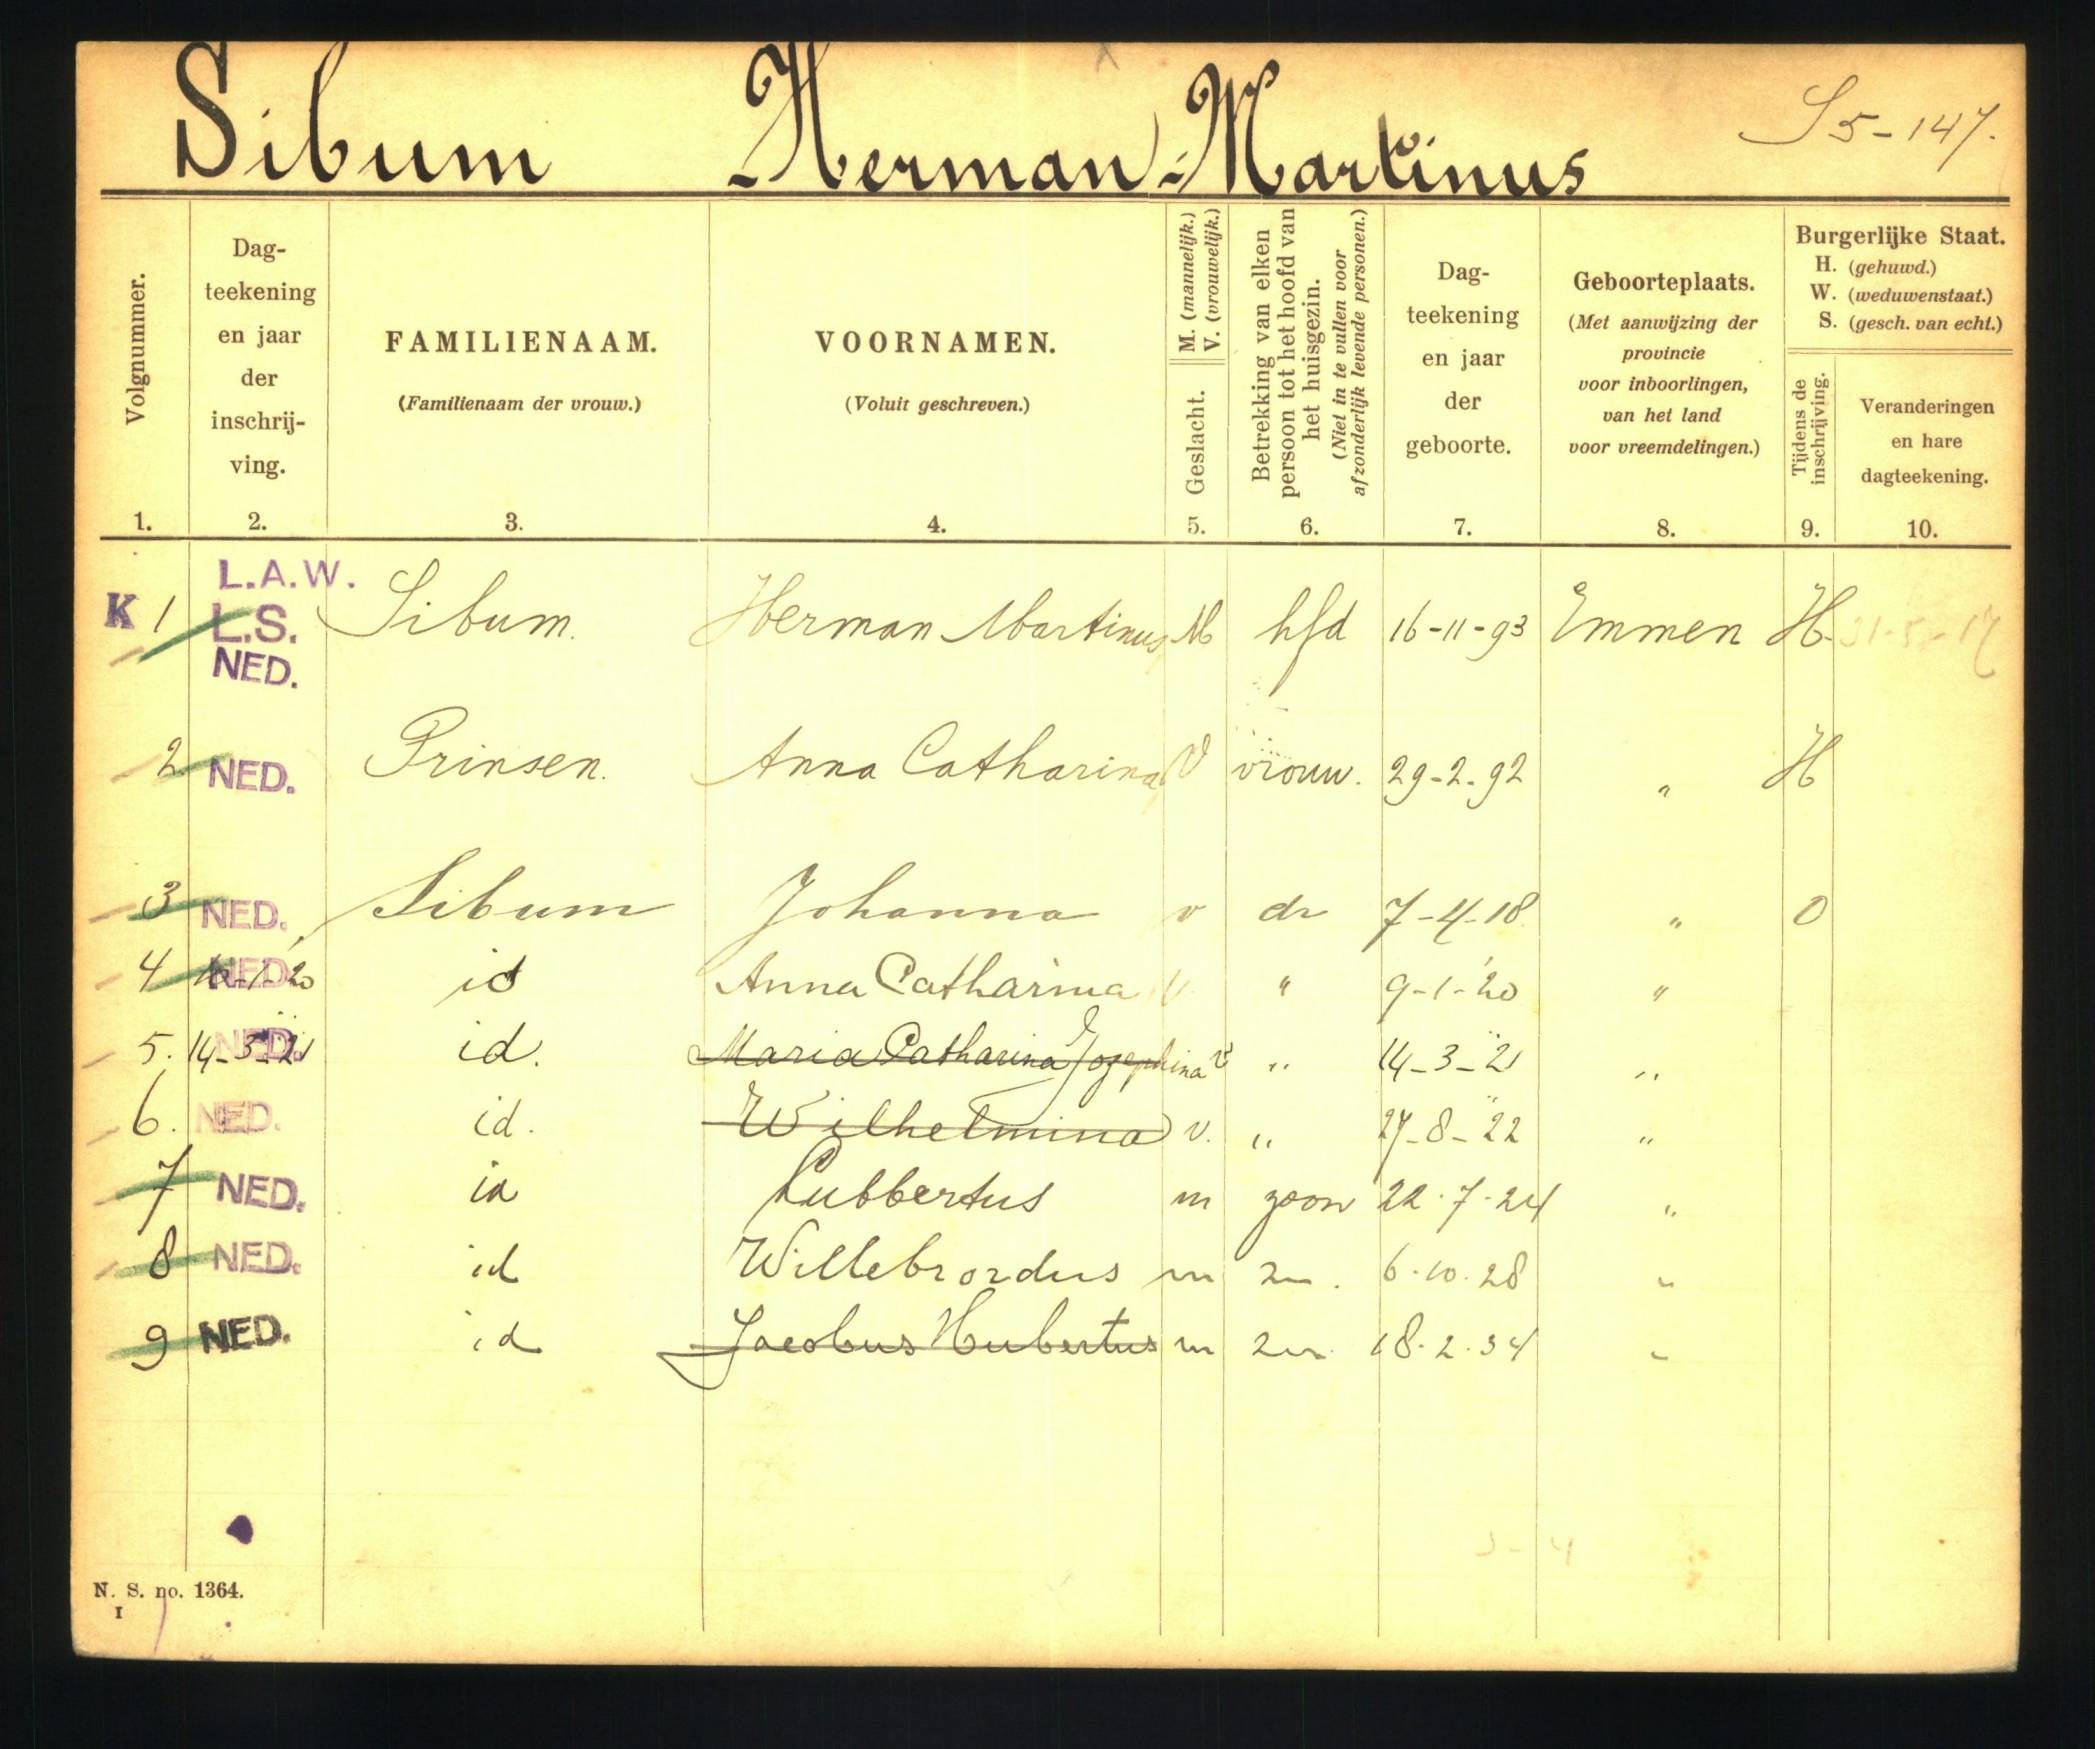 Sibum Herman-Martinus
S5-147.
Volgnummer.
Dag-
teekening
en jaar
der
inschrij-
ving.
FAMILIENAAM.
(Familienaam der vrouw.)
VOORNAMEN.
(Voluit geschreven.)
M. (mannelijk.)
V. (vrouwelijk.)
Geslacht.
Betrekking van elken
persoon tot het hoofd van
het huisgezin.
(Niet in te vullen voor
afzonderlijk levende personen.)
Dag-
teekening
en jaar
der
geboorte.
Geboorteplaats.
(Met aanwijzing der
provincie
voor inboorlingen,
van het land
voor vreemdelingen.)
Burgerlijke Staat.
H. (gehuwd.)
W. (weduwenstaat.)
S. (gesch. van echt.)
Tijdens de
inschrijving.
Veranderingen
en hare
dagteekening.
1. 2. 3. 4. 5. 6. 7. 8. 9. 10.
L.A.W.
K 1 L.S. Sibum. Herman Martinus M hfd 16-11-93 Emmen H.
NED.
2 NED. Prinsen. Anna Catharina V vrouw. 29-2-92 " H
3 NED. Sibum Johanna v dr 7-4-18 " O
4 NED. id Anna Catharina v. " 9-1-'20 "
5. 14-3-21 NED. id. Maria Catharina Josephina v " 14-3-21 "
6. NED. id. Wilhelmina v. " 27-8-22 "
7 NED. id Lubbertus m zoon 22.7.24 "
8 NED. id Willebrordus m zn. 6.10.28 "
9 NED. id Jacobus Hubertus m zn. 18.2.34 "
N. S. no. 1364.
I